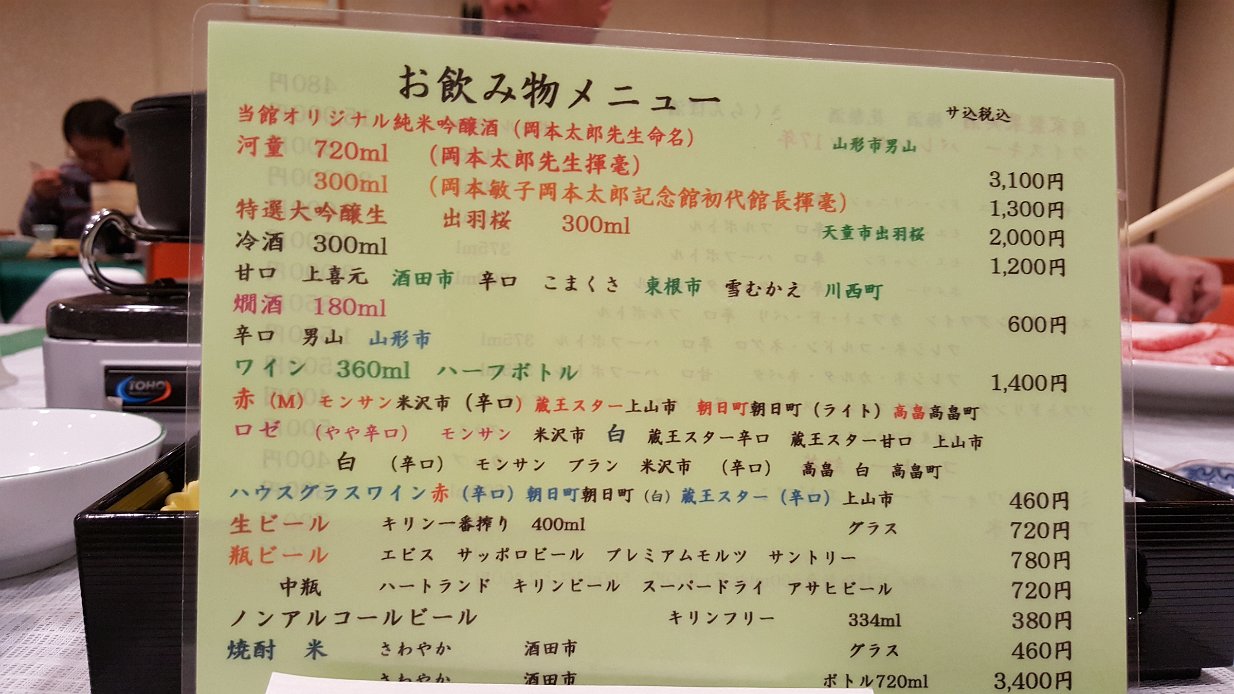 お飲み物メニュー
サ込税込
当館オリジナル純米吟醸酒（岡本太郎先生命名） 山形市男山
河童 720ml （岡本太郎先生揮毫） 3,100円
300ml （岡本敏子岡本太郎記念館初代館長揮毫） 1,300円
特選大吟醸生 出羽桜 300ml 天童市出羽桜 2,000円
冷酒 300ml 1,200円
甘口 上喜元 酒田市 辛口 こまくさ 東根市 雪むかえ 川西町
燗酒 180ml 600円
辛口 男山 山形市
ワイン 360ml ハーフボトル 1,400円
赤（M）モンサン米沢市（辛口）蔵王スター上山市 朝日町朝日町（ライト）高畠高畠町
ロゼ （やや辛口） モンサン 米沢市 白 蔵王スター辛口 蔵王スター甘口 上山市
白 （辛口） モンサン ブラン 米沢市 （辛口） 高畠 白 高畠町
ハウスグラスワイン赤（辛口）朝日町朝日町（白）蔵王スター（辛口）上山市 460円
生ビール キリン一番搾り 400ml グラス 720円
瓶ビール エビス サッポロビール プレミアムモルツ サントリー 780円
中瓶 ハートランド キリンビール スーパードライ アサヒビール 720円
ノンアルコールビール キリンフリー 334ml 380円
焼酎 米 さわやか 酒田市 グラス 460円
さわやか 酒田市 ボトル720ml 3,400円
TOHO